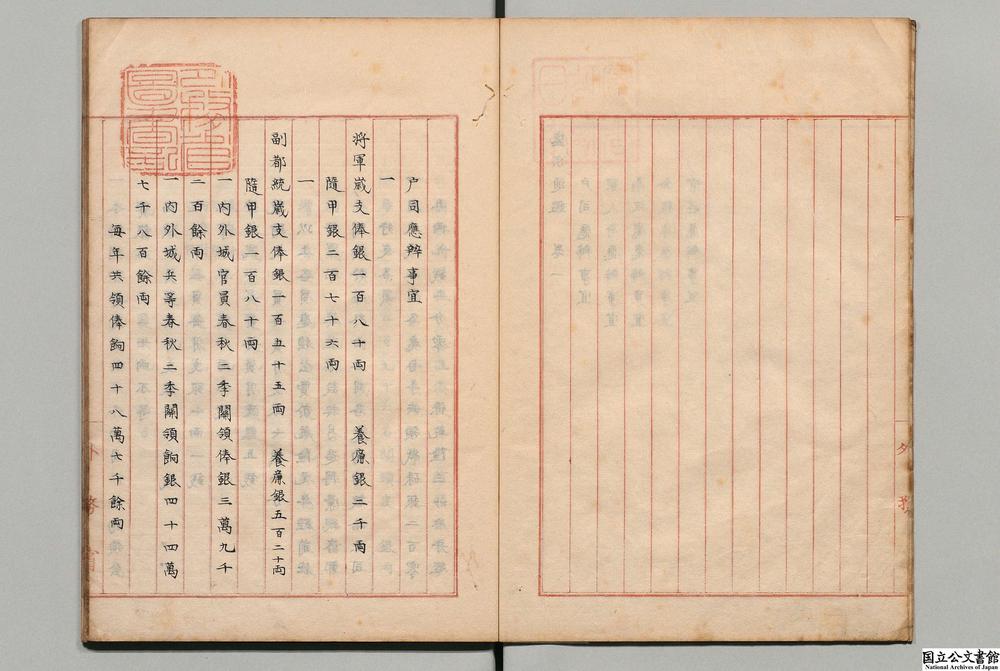 户司應辦事宜
一
將軍歲支俸銀一百八十兩　養廉銀二千兩
隨甲銀二百七十六兩
一
副都統歲支俸銀一百五十五兩　養廉銀五百二十兩
隨甲銀一百八十兩
一內外城官員春秋二季關領俸銀三萬九千
二百餘兩
一內外城兵等春秋二季關領餉銀四十四萬
七千八百餘兩
每年共領俸餉四十八萬六千餘兩
外務省
国立公文書館
National Archives of Japan